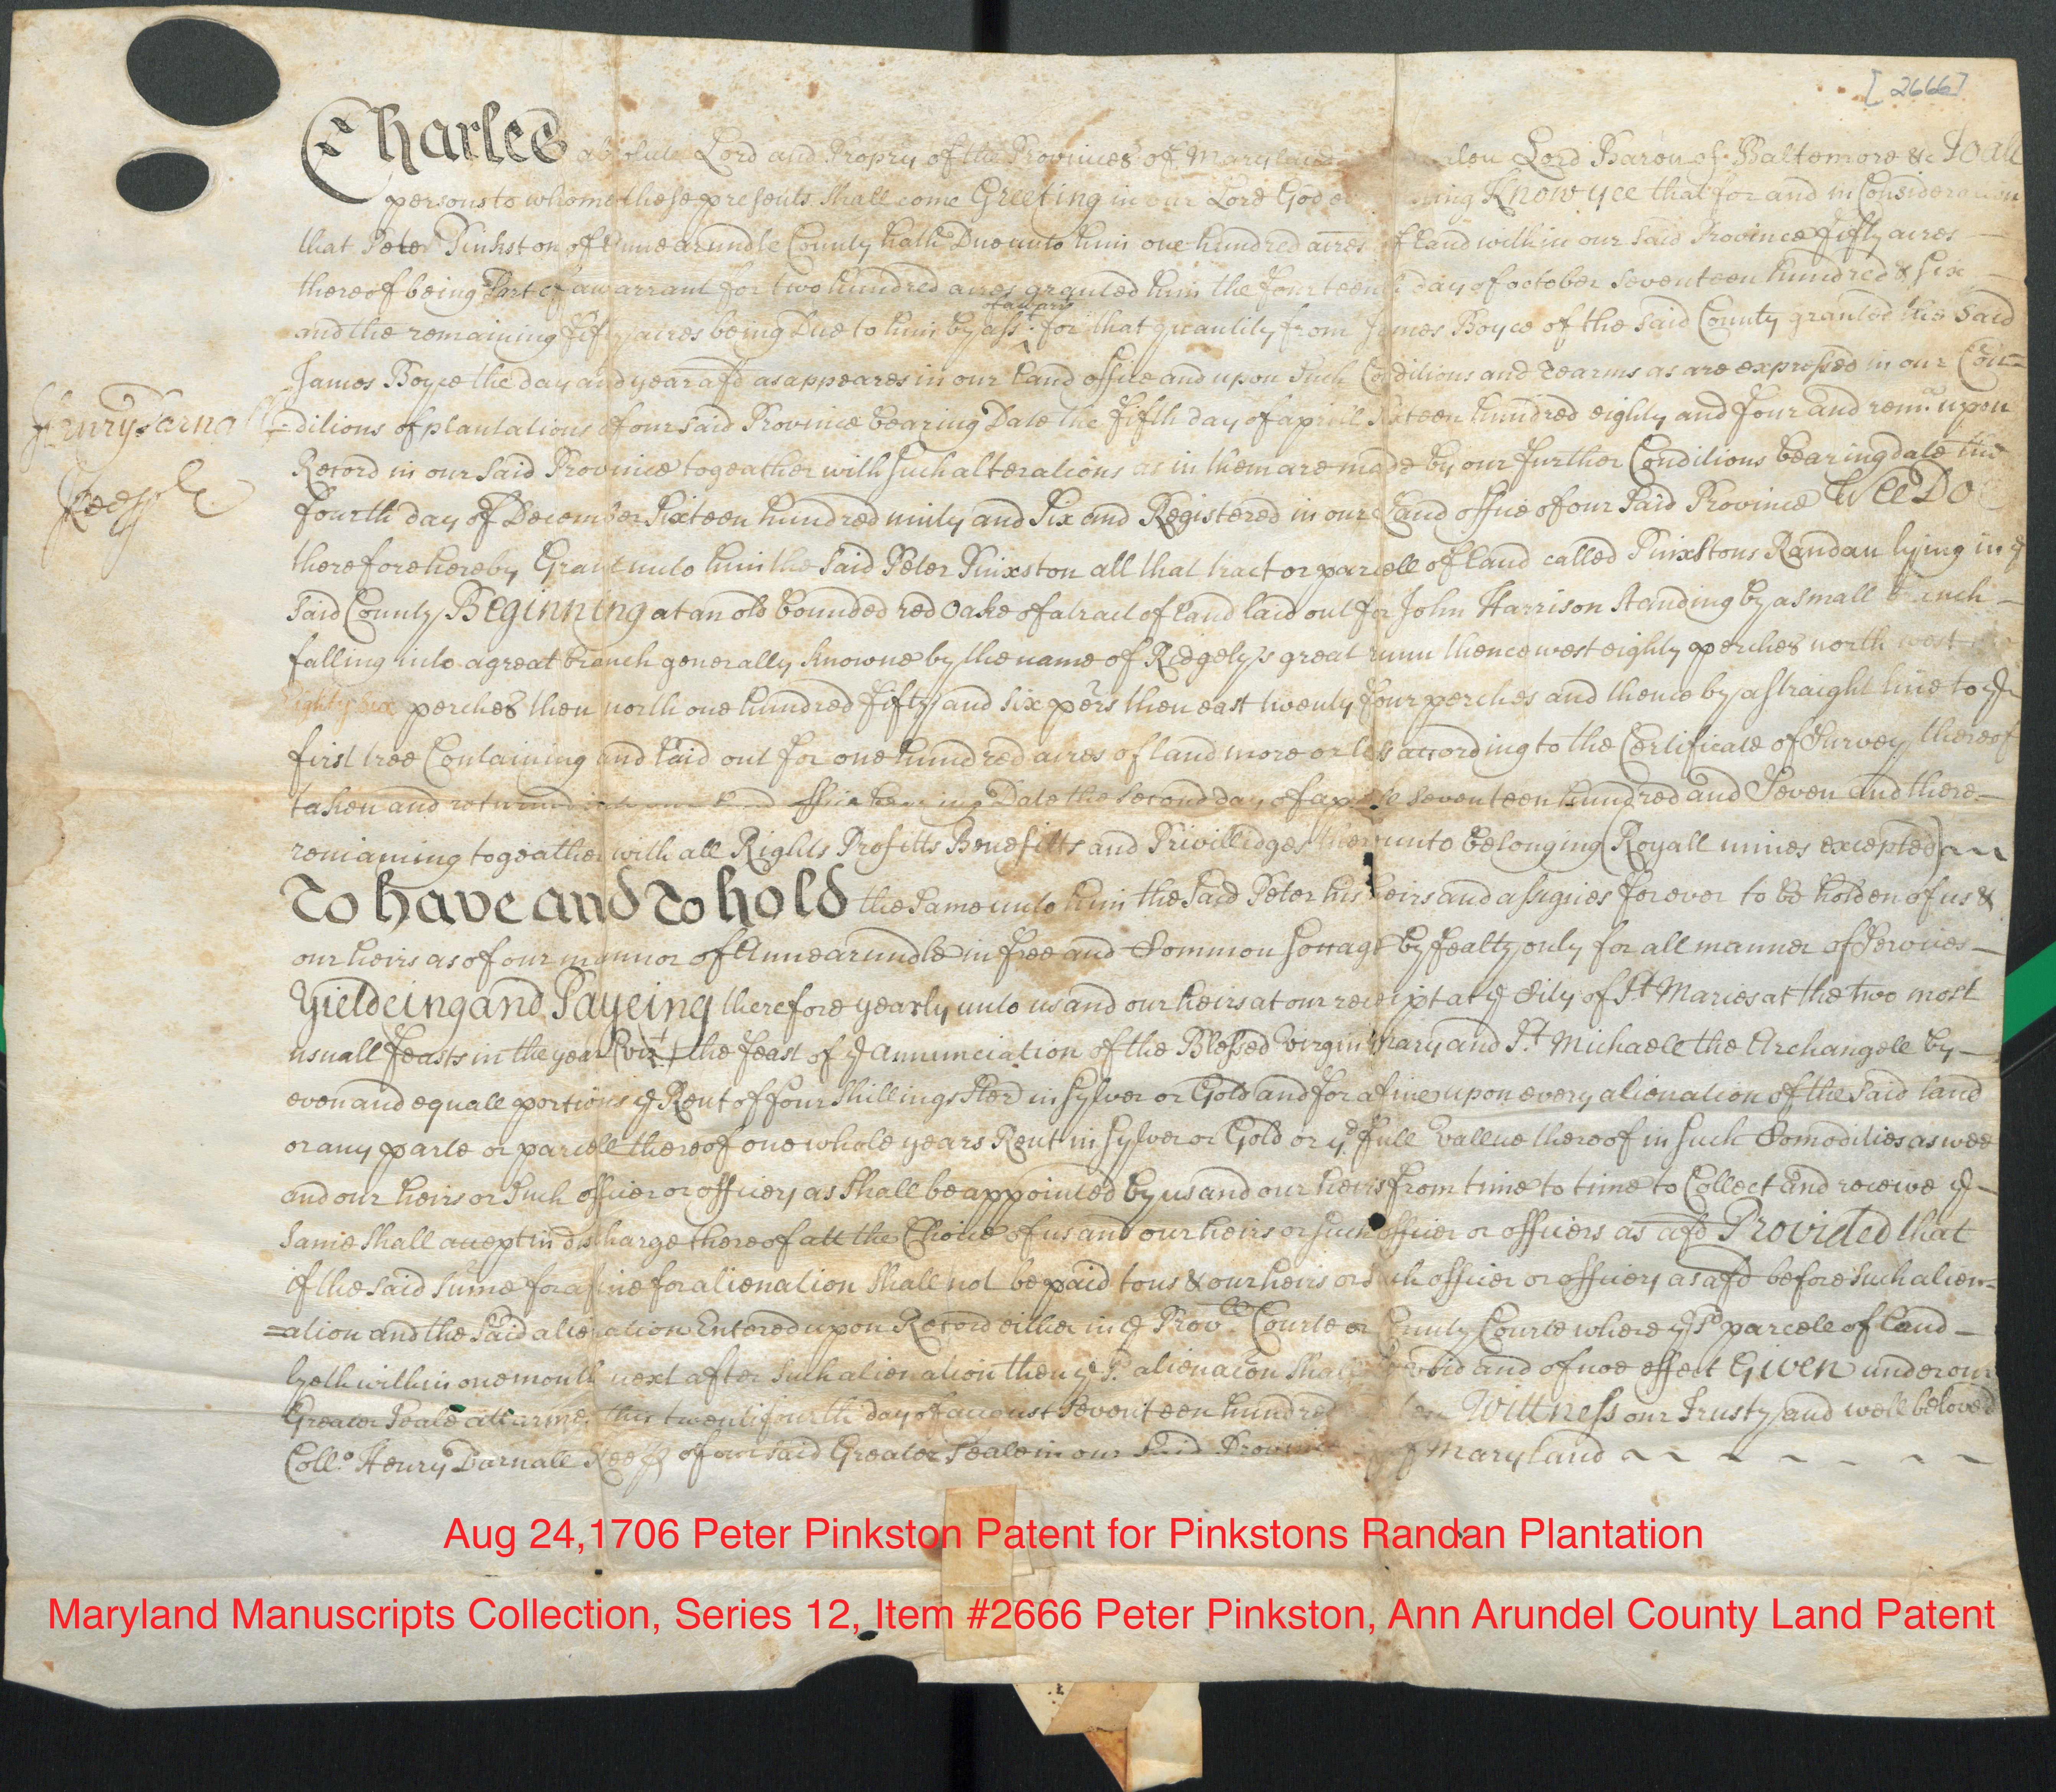 [ 2666 ]
Charles absolute Lord and Propry of the Provinces of Maryland Lord Baron of Baltemore &c To all
persons to whome these presents shall come Greeting in our Lord God Know yee that for and in Consideration
that Peter Pinkston of Annearundle County hath Due unto him one hundred acres of land within our said Province fifty acres
thereof being Part of a warrant for two hundred acres granted him the fourteenth day of october seventeen hundred & six
and the remaining fifty acres being Due to him by asst. of a warrt for that quantity from James Boyce of the said County granted the said
James Boyce the day and year afd as appeares in our land office and upon such Conditions and tearms as are expressed in our Con=
Henry Darnall
=ditions of plantations of our said Province bearing Date the fifth day of aprill sixteen hundred eighty and four and rem.a upon
Record in our said Province togeather with such alterations as in them are made by our further Conditions bearing date the
Keepr
fourth day of December sixteen hundred ninty and six and Registered in our land office of our said Province Wee Do
therefore hereby Grant unto him the said Peter Pinxston all that tract or parcell of land called Pinxstons Randan lying in ye
said County Beginning at an old bounded red Oake of a tract of land laid out for John Harrison standing by a small branch
falling into a great branch generally knowne by the name of Ridgely's great runn thence west eighty perches north west
Eighty six perches then north one hundred fifty and six pers then east twenty four perches and thence by a straight line to ye
first tree Containing and laid out for one hundred acres of land more or less according to the Certificate of Survey thereof
taken and returned into our land office bearing Date the second day of seventeen hundred and Seven and there
remaining togeather with all Rights Profitts Benefitts and Privilledges thereunto belonging (Royall mines excepted)
To have and To hold the same unto him the said Peter his heirs and assignes forever to be holden of us &
our heirs as of our mannor of Annearundle in free and Common soccage by fealty only for all manner of Services
Yieldeing and Payeing therefore yearly unto us and our heirs at our receipt at ye City of St Maries at the two most
usuall feasts in the year (vizt) the feast of ye annunciation of the Blessed virgin Mary and St Michaell the Archangell by
even and equall portions ye Rent of four shillings sterd in sylver or Gold and for a fine upon every alienation of the said land
or any parte or parcell thereof one whole years Rent in sylver or Gold or ye full vallue thereof in such Comodities as wee
and our heirs or such officer or officers as shall be appointed by us and our heirs from time to time to Collect and receive ye
same shall accept in discharge thereof att the Choice of us and our heirs or such officer or officers as afd Provided that
if the said sume for a fine for alienation shall not be paid to us & our heirs or such officer or officers as afd before such alien=
=ation and the said alienation Entered upon Record either in ye Provll Courte or County Courte where ye sd parcell of land
lyeth within one month next after such alienation then ye sd alienacon shall be void and of noe effect Given under our
Greater Seale att armes this twentifourth day of august seventeen hundred Wittness our Trusty and well beloved
Collo Henry Darnall Keepr of our said Greater Seale in our said Province of Maryland
Aug 24,1706 Peter Pinkston Patent for Pinkstons Randan Plantation
Maryland Manuscripts Collection, Series 12, Item #2666 Peter Pinkston, Ann Arundel County Land Patent